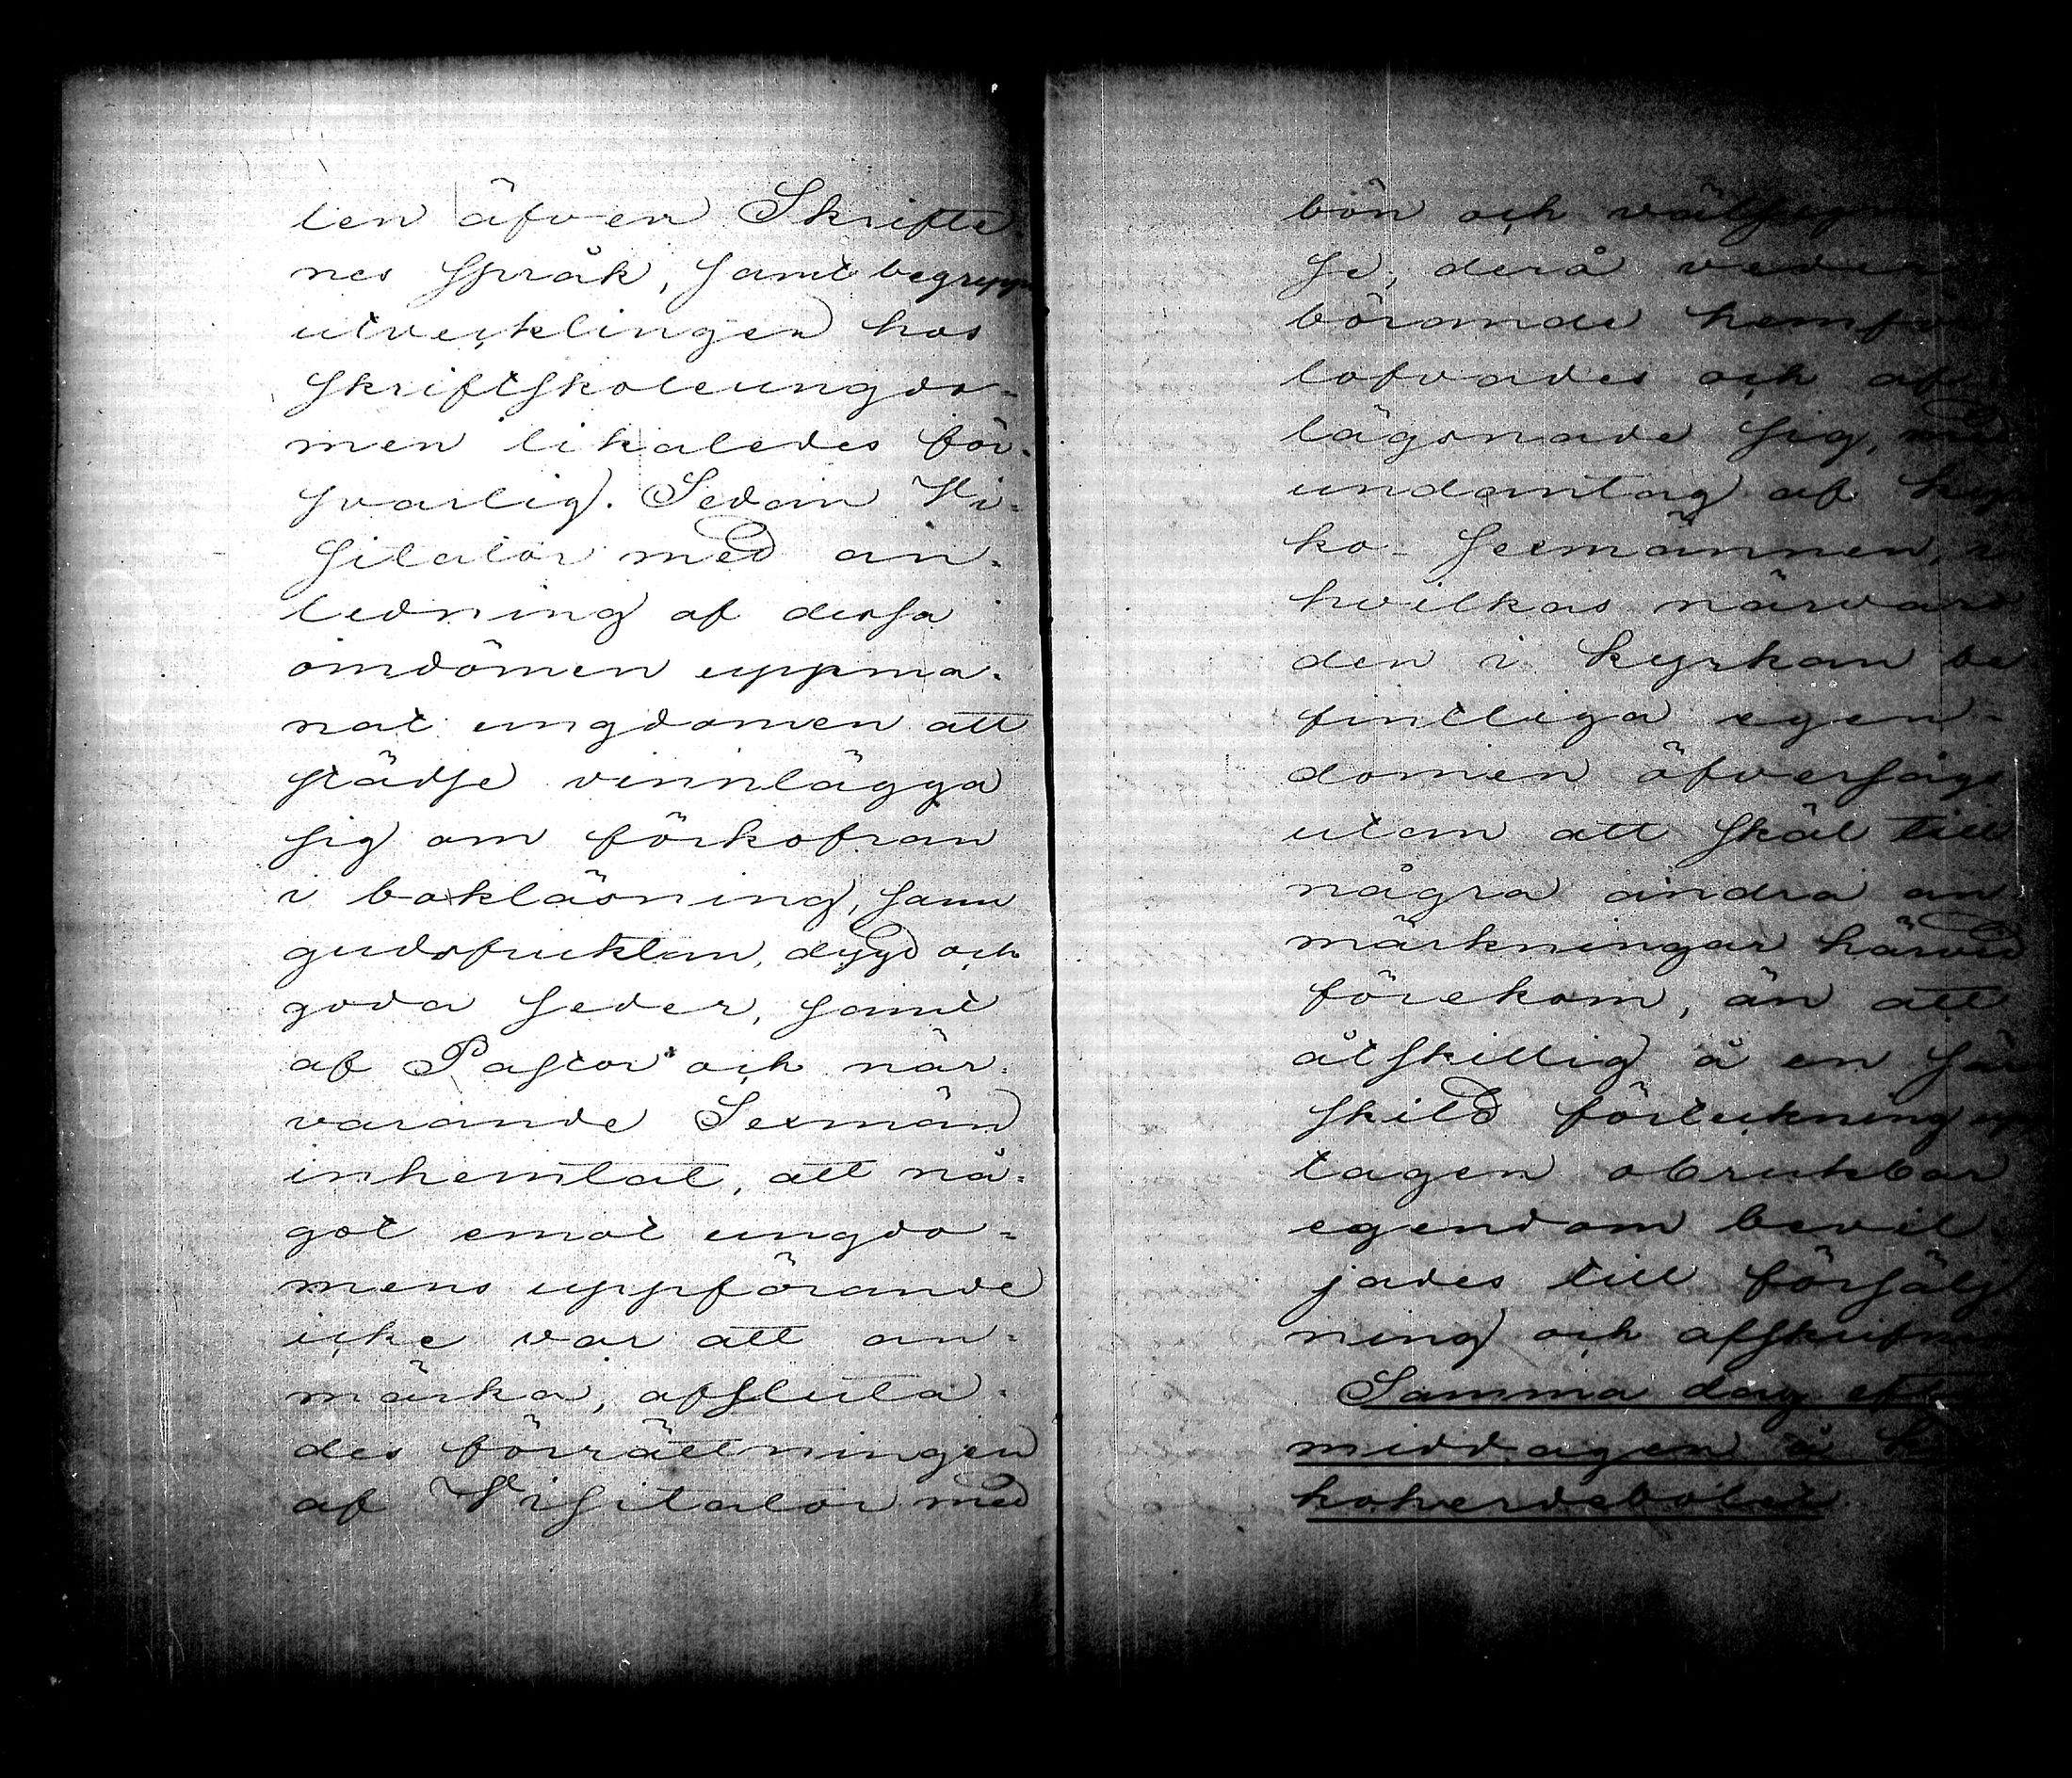 ten äfven Skrifte-
nes språk, samt begrepps
utvecklingen hos
skriftskoleungdo-
men likaledes för-
svarlig. Sedan Vi-
sitator med an-
ledning af dessa
omdömen uppma-
nat ungdomen att
städse vinnlägga
sig om förkofran
i bokläsning, sann
gudsfruktan, dygd och
goda seder, samt
af Pastor och när-
varande Sexmän
inhemtat, att nå-
got emot ungdo-
mens uppförande
icke var att an-
märka, afsluta-
des förrättningen
af Visitator med
bön och välsignel
se, derå veder
börande hemför
lofvades och af
lägsnade sig, med
undantag af kyr
ko-sexmännen, i
hvilkas närvaro
den i kyrkan be
fintliga egen-
domen öfversågs
utan att skäl till
några andra an
märkningar härvid
förekom, än att
åtskillig å en sär
skild förteckning upp
tagen obrukbar
egendom bevil
jades till försälj
ning och afskrifning
Samma dag efter
middagen å kyr
koherdebolet